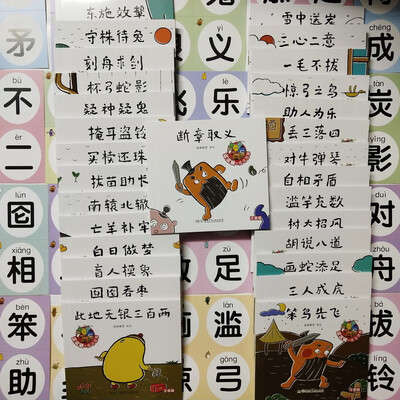 东施效颦
守株待兔
刻舟求剑
杯弓蛇影
疑神疑鬼
掩耳盗铃
买椟还珠
拔苗助长
南辕北辙
亡羊补牢
白日做梦
盲人摸象
囫囵吞枣
此地无银三百两
断章取义
雪中送炭
三心二意
一毛不拔
惊弓之鸟
助人为乐
丢三落四
对牛弹琴
自相矛盾
滥竽充数
树大招风
胡说八道
画蛇添足
三人成虎
笨鸟先飞
矛
bù
不
二
囵
xiāng
相
bèn
笨
zhù
助
yì
义
lè
乐
zú
足
làn
滥
gōng
弓
chéng
成
tàn
炭
yǐng
影
duì
对
zhōu
舟
bá
拔
líng
铃